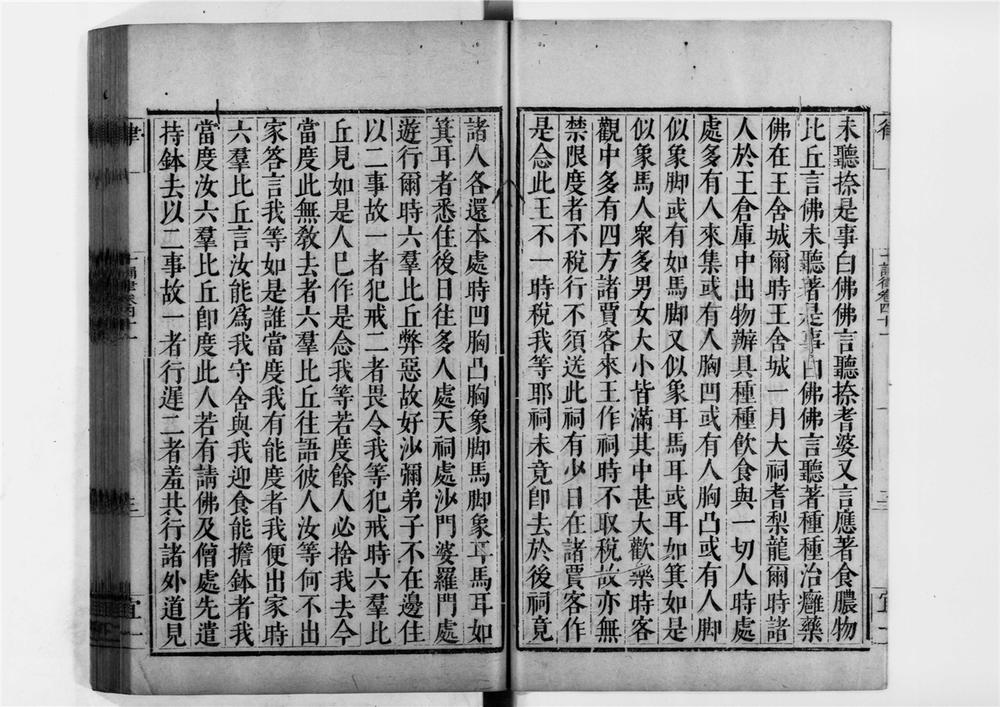 未聽捺是事白佛佛言聽捺耆婆又言應著食膿物
比丘言佛未聽著是事白佛佛言聽著種種治癰藥
佛在王舍城爾時王舍城一月大祠耆梨龍爾時諸
人於王倉庫中出物辦具種種飲食與一切人時處
處多有人來集或有人胸凹或有人胸凸或有人脚
似象脚或有如馬脚又似象耳馬耳或耳如箕如是
似象馬人衆多男女大小皆滿其中甚大歡樂時客
觀中多有四方諸賈客來王作祠時不取稅故亦無
禁限度者不稅行不須送此祠有少日在諸賈客作
是念此王不一時稅我等耶祠未竟卽去於後祠竟
諸人各還本處時凹胸凸胸象脚馬脚象耳馬耳如
箕耳者悉住後日往多人處天祠處沙門婆羅門處
遊行爾時六羣比丘弊惡故好沙彌弟子不在邊住
以二事故一者犯戒二者畏令我等犯戒時六羣比
丘見如是人已作是念我等若度餘人必捨我去今
當度此無敎去者六羣比丘往語彼人汝等何不出
家答言我等如是誰當度我有能度者我便出家時
六羣比丘言汝能爲我守舍與我迎食能擔鉢者我
當度汝六羣比丘卽度此人若有請佛及僧處先遣
持鉢去以二事故一者行遲二者羞共行諸外道見